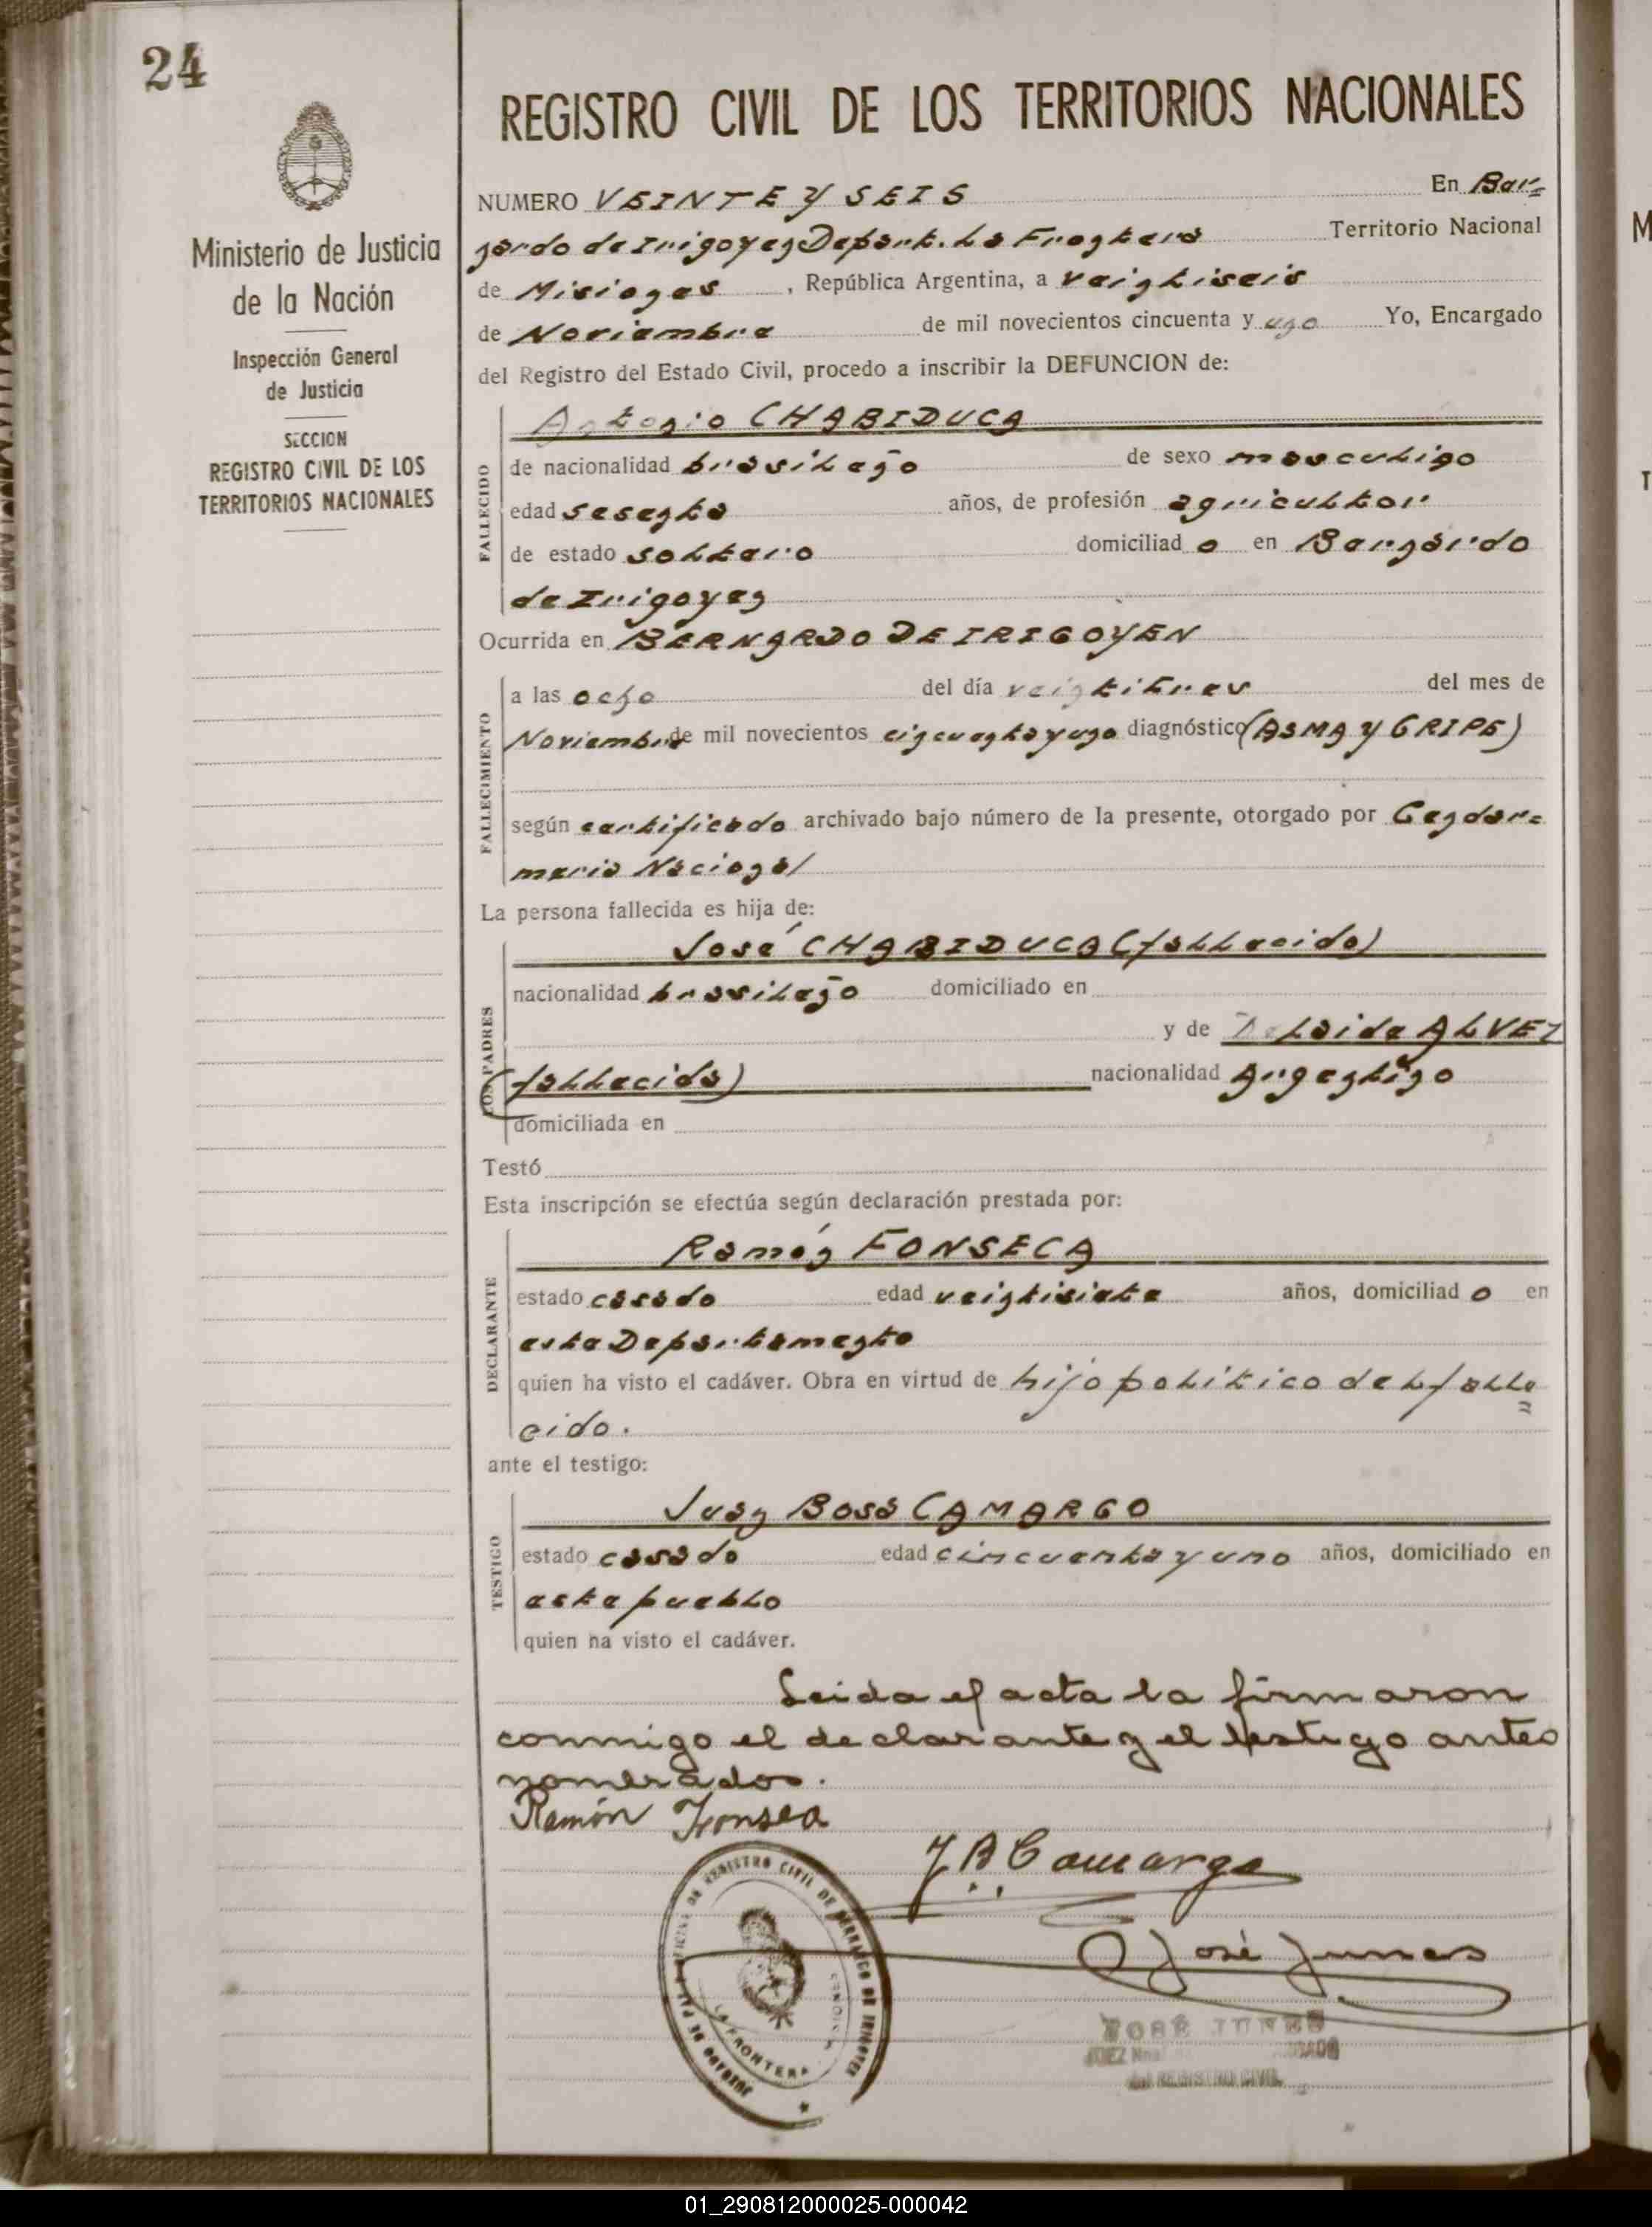 24
Ministerio de Justicia
de la Nación
Inspección General
de Justicia
SECCION
REGISTRO CIVIL DE LOS
TERRITORIOS NACIONALES
REGISTRO CIVIL DE LOS TERRITORIOS NACIONALES
NUMERO VEINTE Y SEIS En Ber=
nardo de Irigoyen Depart. La Frontera Territorio Nacional
de Misiones , República Argentina, a veintiseis
de Noviembre de mil novecientos cincuenta y uno Yo, Encargado
del Registro del Estado Civil, procedo a inscribir la DEFUNCION de:
Antonio CHABIDUCA
FALLECIDO
de nacionalidad brasileño de sexo masculino
edad sesenta años, de profesión agricultor
de estado soltero domiciliad o en Bernardo
de Irigoyen
Ocurrida en BERNARDO DE IRIGOYEN
FALLECIMIENTO
a las ocho del día veintitres del mes de
Noviembre de mil novecientos cincuenta y uno diagnóstico (ASMA Y GRIPE)
según certificado archivado bajo número de la presente, otorgado por Gendar=
meria Nacional
La persona fallecida es hija de:
José CHABIDUCA (fallecido)
LOS PADRES
nacionalidad brasileño domiciliado en
y de ALVEZ
(fallecida) nacionalidad Argentino
domiciliada en
Testó
Esta inscripción se efectúa según declaración prestada por:
Ramón FONSECA
DECLARANTE
estado casado edad veintisiete años, domiciliad o en
este Departamento
quien ha visto el cadáver. Obra en virtud de hijo politico del falle
=
cido.
ante el testigo:
Juan Bosa CAMARGO
TESTIGO
estado casado edad cincuenta y uno años, domiciliado en
este pueblo
quien ha visto el cadáver.
Leida el acta la firmaron
conmigo el declarante y el testigo antes
nombrados.
Ramón Fonsea
J.B. Camargo
José Junes
JOSÉ JUNES
JUEZ
del REGISTRO CIVIL
REGISTRO CIVIL DE BERNARDO DE IRIGOYEN
LA FRONTERA
JUZGADO DE PAZ
01_290812000025-000042